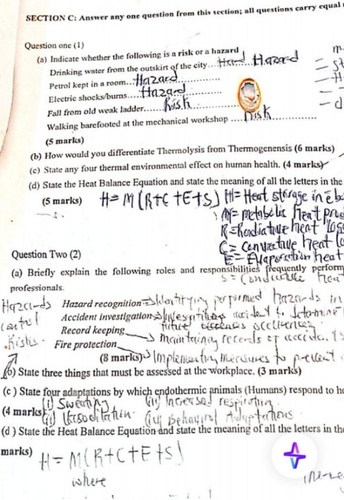 SECTION C: Answer any one question from this section; all questions carry equal
Question one (1)
(a) Indicate whether the following is a risk or a hazard
Drinking water from the outskirt of the city... Hazard
Petrol kept in a room... Hazard
Electric shocks/burns... Hazard
Fall from old weak ladder... Risk
Walking barefooted at the mechanical workshop ... Risk
(5 marks)
(b) How would you differentiate Thermolysis from Thermogenensis (6 marks)
(c) State any four thermal environmental effect on human health. (4 marks)
(d) State the Heat Balance Equation and state the meaning of all the letters in the
(5 marks) H = M(R+C+E+S) H = Heat storage in
M = metabolic heat
R = Radiative heat
C = Convective heat
E = Evaporation heat
S = Conductive heat
Question Two (2)
(a) Briefly explain the following roles and responsibilities frequently perform
professionals.
Hazards Hazard recognition Identifying hazards in
control Accident investigation
Risks Record keeping maintaining records of
Fire protection
(8 marks) Implementing measures to prevent
(b) State three things that must be assessed at the workplace. (3 marks)
(c ) State four adaptations by which endothermic animals (Humans) respond to he
(4 marks) (i) Sweating (iii) Increased respiration
(ii) Vasodilation (iv) Behavioral Adaptations
(d ) State the Heat Balance Equation and state the meaning of all the letters in the
marks) H = M(R+C+E+S)
where